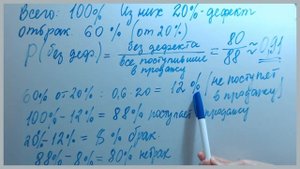 Всего: 100% Из них 20% - дефект
отбрак. 60% (от 20%)
P(без деф) = без дефекта / все поступившие в продажу = 80/88 ≈ 0,91
60% от 20% : 0,6·20 = 12% (не поступает в продажу)
100% - 12% = 88% поступает в продажу
20% - 12% = 8% брак.
88% - 8% = 80% не брак